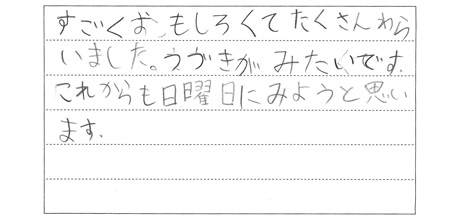 すごくおもしろくてたくさんわら
いました。うづきがみたいです.
これからも日曜日にみようと思い
ます.